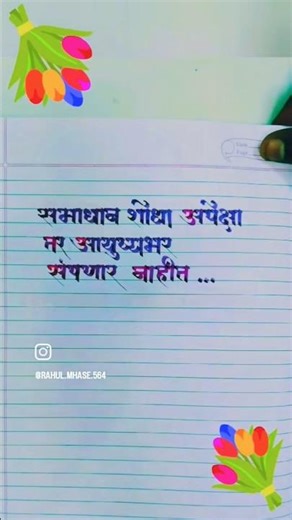 समाधान शोधा अपेक्षा
तर आयुष्यभर
संपणार नाहीत ...
@RAHUL.MHASE.564